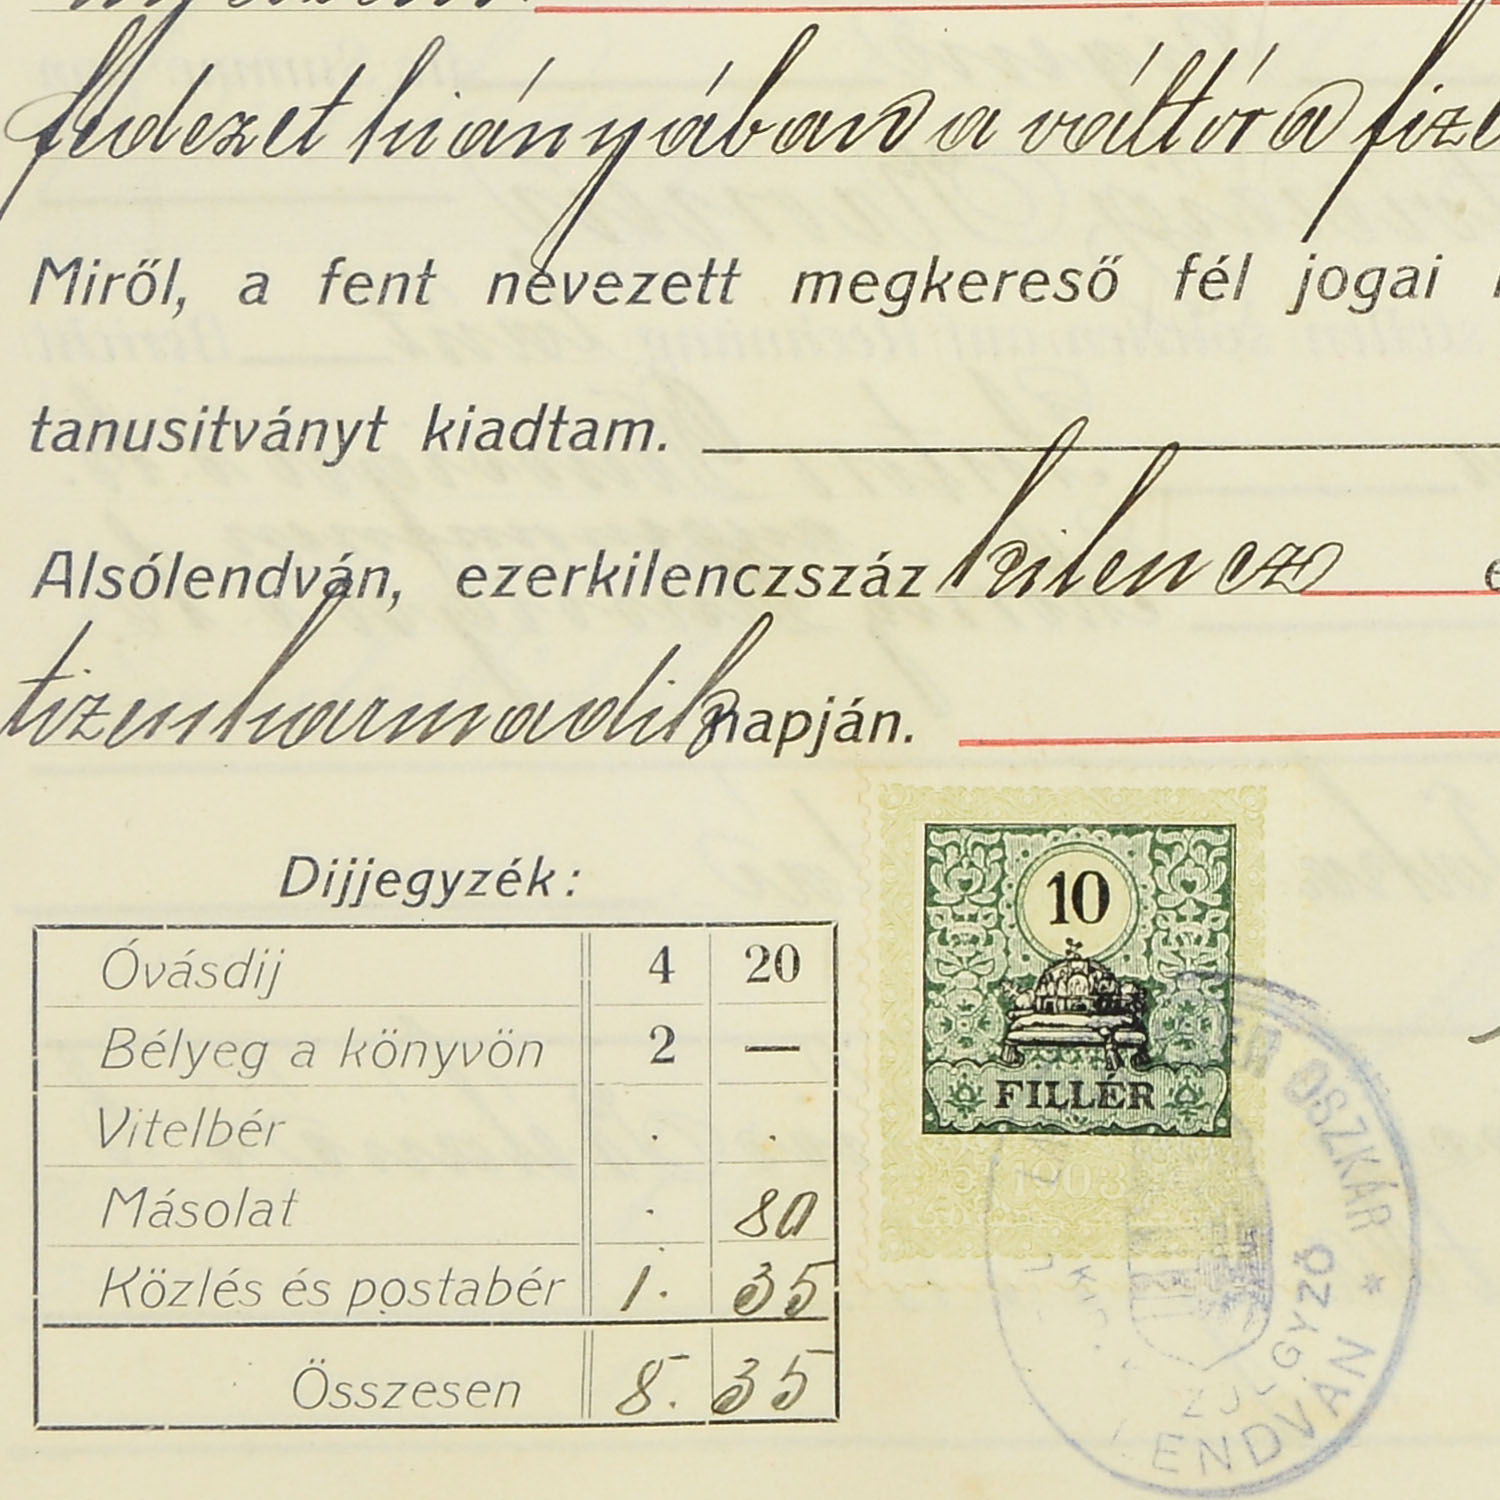 fedezet hiányában a váltóra fize
Miről, a fent nevezett megkereső fél jogai
tanusitványt kiadtam.
Alsólendván, ezerkilenczszáz kilencz e
tizenharmadik napján.
Dijjegyzék:
Óvásdij 4 20
Bélyeg a könyvön 2 —
Vitelbér . .
Másolat . 80
Közlés és postabér 1. 35
Összesen 8. 35
10
FILLÉR
1903
OSZKÁR *
KIR. KÖZJEGYZŐ
LENDVÁN